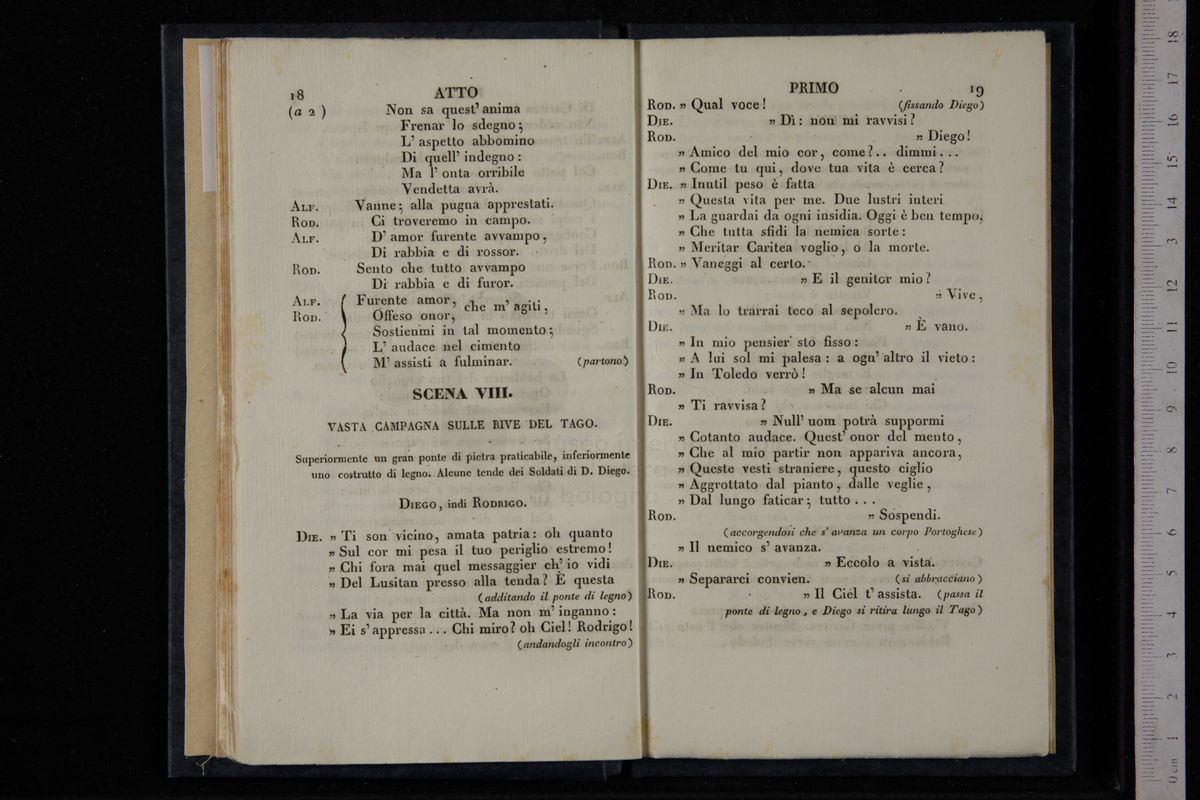 18 ATTO
(a 2) Non sa quest' anima
Frenar lo sdegno;
L' aspetto abbomino
Di quell' indegno:
Ma l' onta orribile
Vendetta avrà.
ALF. Vanne; alla pugna apprestati.
ROD. Ci troveremo in campo.
ALF. D' amor furente avvampo,
Di rabbia e di rossor.
ROD. Sento che tutto avvampo
Di rabbia e di furor.
ALF. Furente amor, che m' agiti,
ROD. Offeso onor,
Sostienmi in tal momento;
L' audace nel cimento
M' assisti a fulminar. (partono)
SCENA VIII.
VASTA CAMPAGNA SULLE RIVE DEL TAGO.
Superiormente un gran ponte di pietra praticabile, inferiormente
uno costrutto di legno. Alcune tende dei Soldati di D. Diego.
DIEGO, indi RODRIGO.
DIE. » Ti son vicino, amata patria: oh quanto
» Sul cor mi pesa il tuo periglio estremo!
» Chi fora mai quel messaggier ch' io vidi
» Del Lusitan presso alla tenda? È questa
(additando il ponte di legno)
» La via per la città. Ma non m' inganno:
» Ei s' appressa ... Chi miro? oh Ciel! Rodrigo!
(andandogli incontro)
PRIMO 19
ROD. » Qual voce! (fissando Diego)
DIE. » Dì: non mi ravvisi?
ROD. » Diego!
» Amico del mio cor, come?.. dimmi...
» Come tu qui, dove tua vita è cerca?
DIE. » Inutil peso è fatta
» Questa vita per me. Due lustri interi
» La guardai da ogni insidia. Oggi è ben tempo,
» Che tutta sfidi la nemica sorte:
» Meritar Caritea voglio, o la morte.
ROD. » Vaneggi al certo.
DIE. » E il genitor mio?
ROD. » Vive,
» Ma lo trarrai teco al sepolcro.
DIE. » È vano.
» In mio pensier sto fisso:
» A lui sol mi palesa: a ogn' altro il vieto:
» In Toledo verrò!
ROD. » Ma se alcun mai
» Ti ravvisa?
DIE. » Null' uom potrà suppormi
» Cotanto audace. Quest' onor del mento,
» Che al mio partir non appariva ancora,
» Queste vesti straniere, questo ciglio
» Aggrottato dal pianto, dalle veglie,
» Dal lungo faticar; tutto...
ROD. » Sospendi.
(accorgendosi che s' avanza un corpo Portoghese)
» Il nemico s' avanza.
DIE. » Eccolo a vista.
» Separarci convien. (si abbracciano)
ROD. » Il Ciel t' assista. (passa il
ponte di legno, e Diego si ritira lungo il Tago)
0 cm 1 2 3 4 5 6 7 8 9 10 11 12 13 14 15 16 17 18